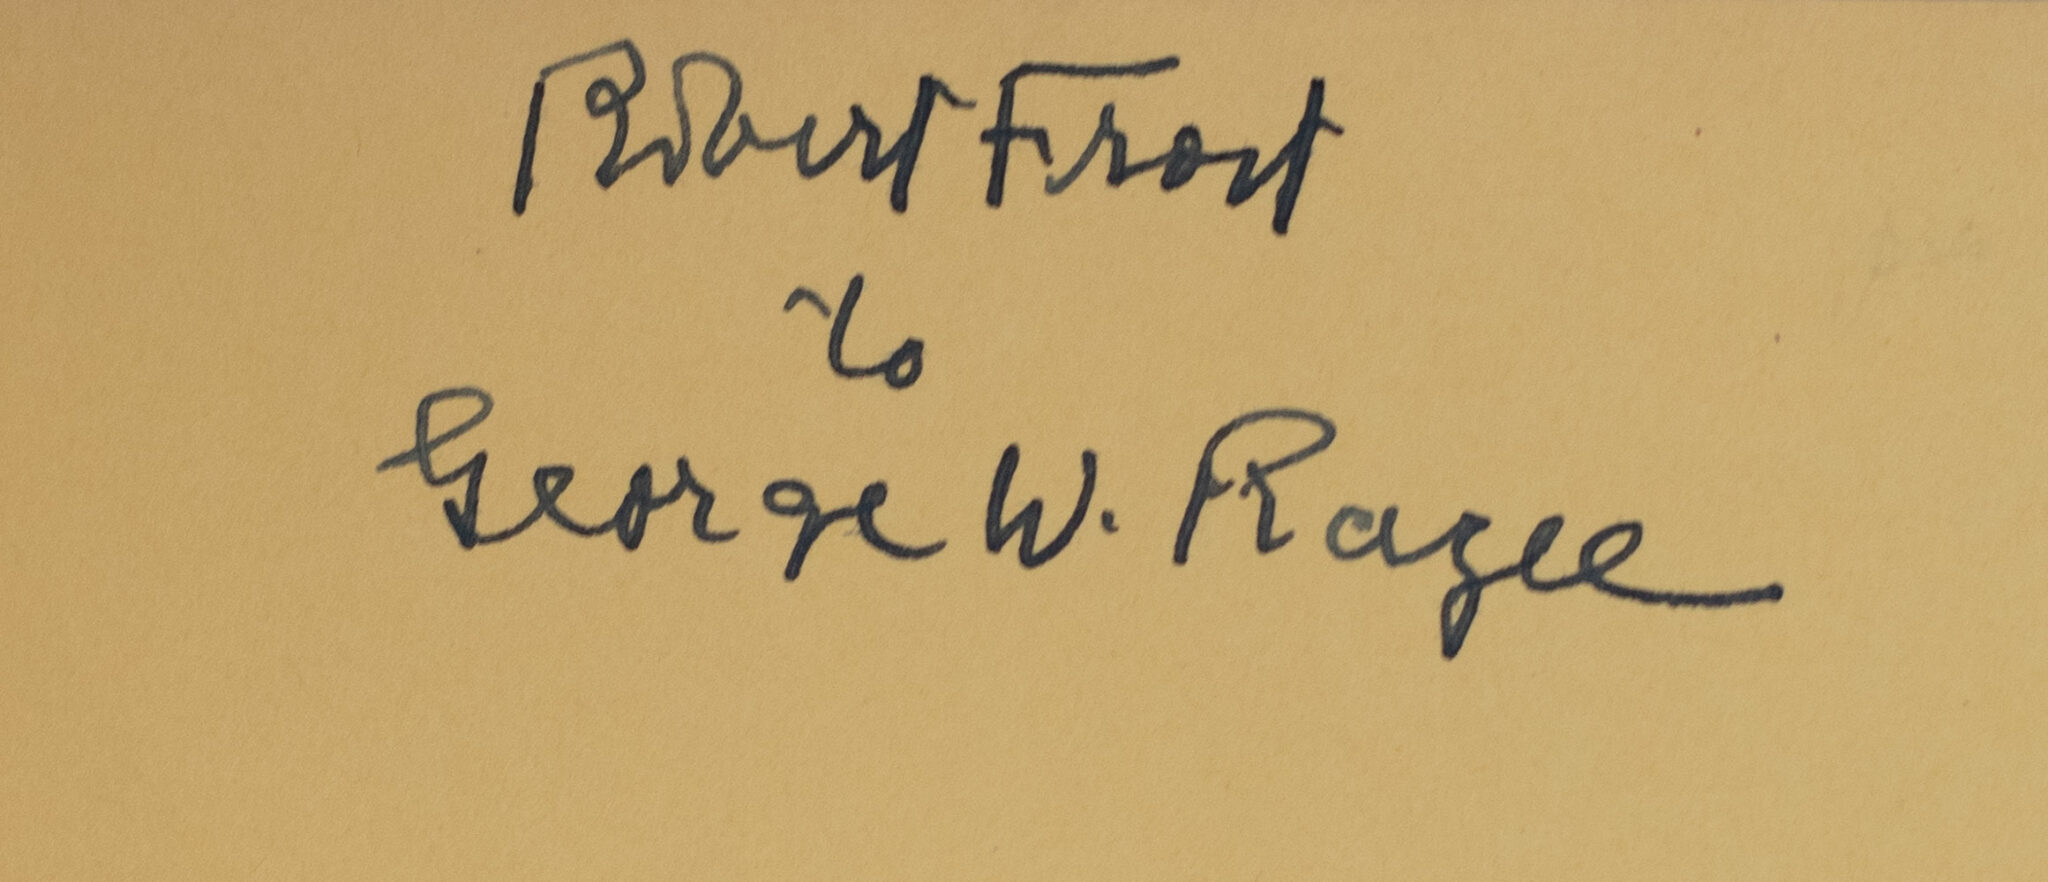 Robert Frost
to
George W. Razee